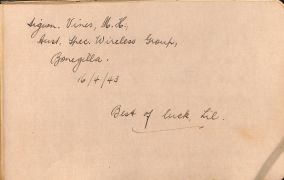 Sigmn. Vines, M. H.,
Aust. Spec. Wireless Group,
Bonegilla.
16/4/43
Best of luck, Lil.